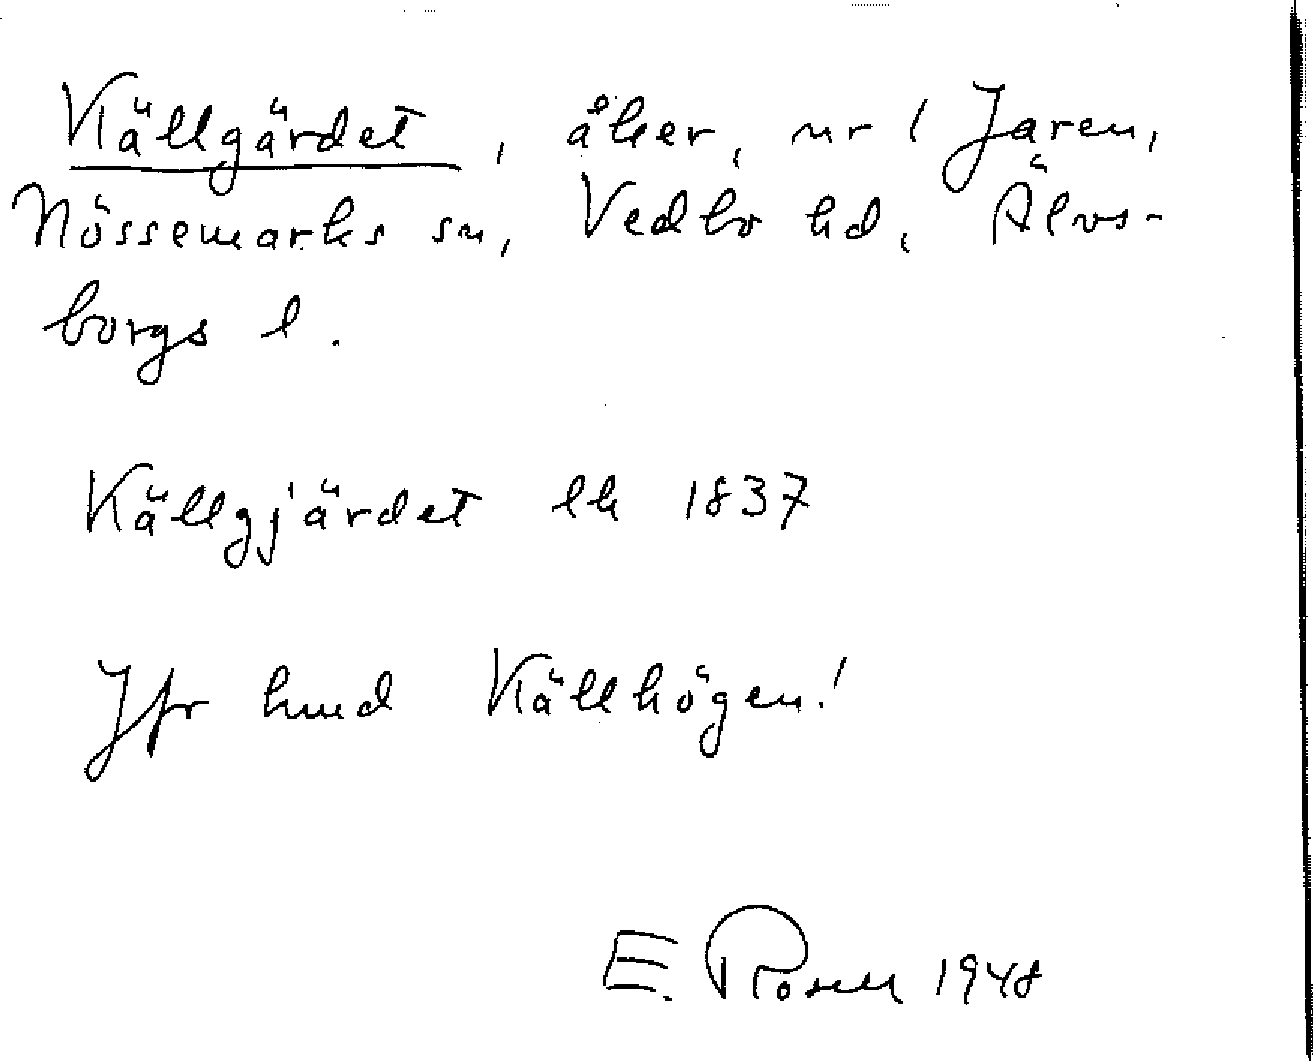 Källgärdet, åker, nr 1 Jaren,
Nössemarks sn, Vedbo hd, Älvs-
borgs l.
Källgjärdet lh 1837
Jfr hmd Källhögen!
E. Rosell 1948